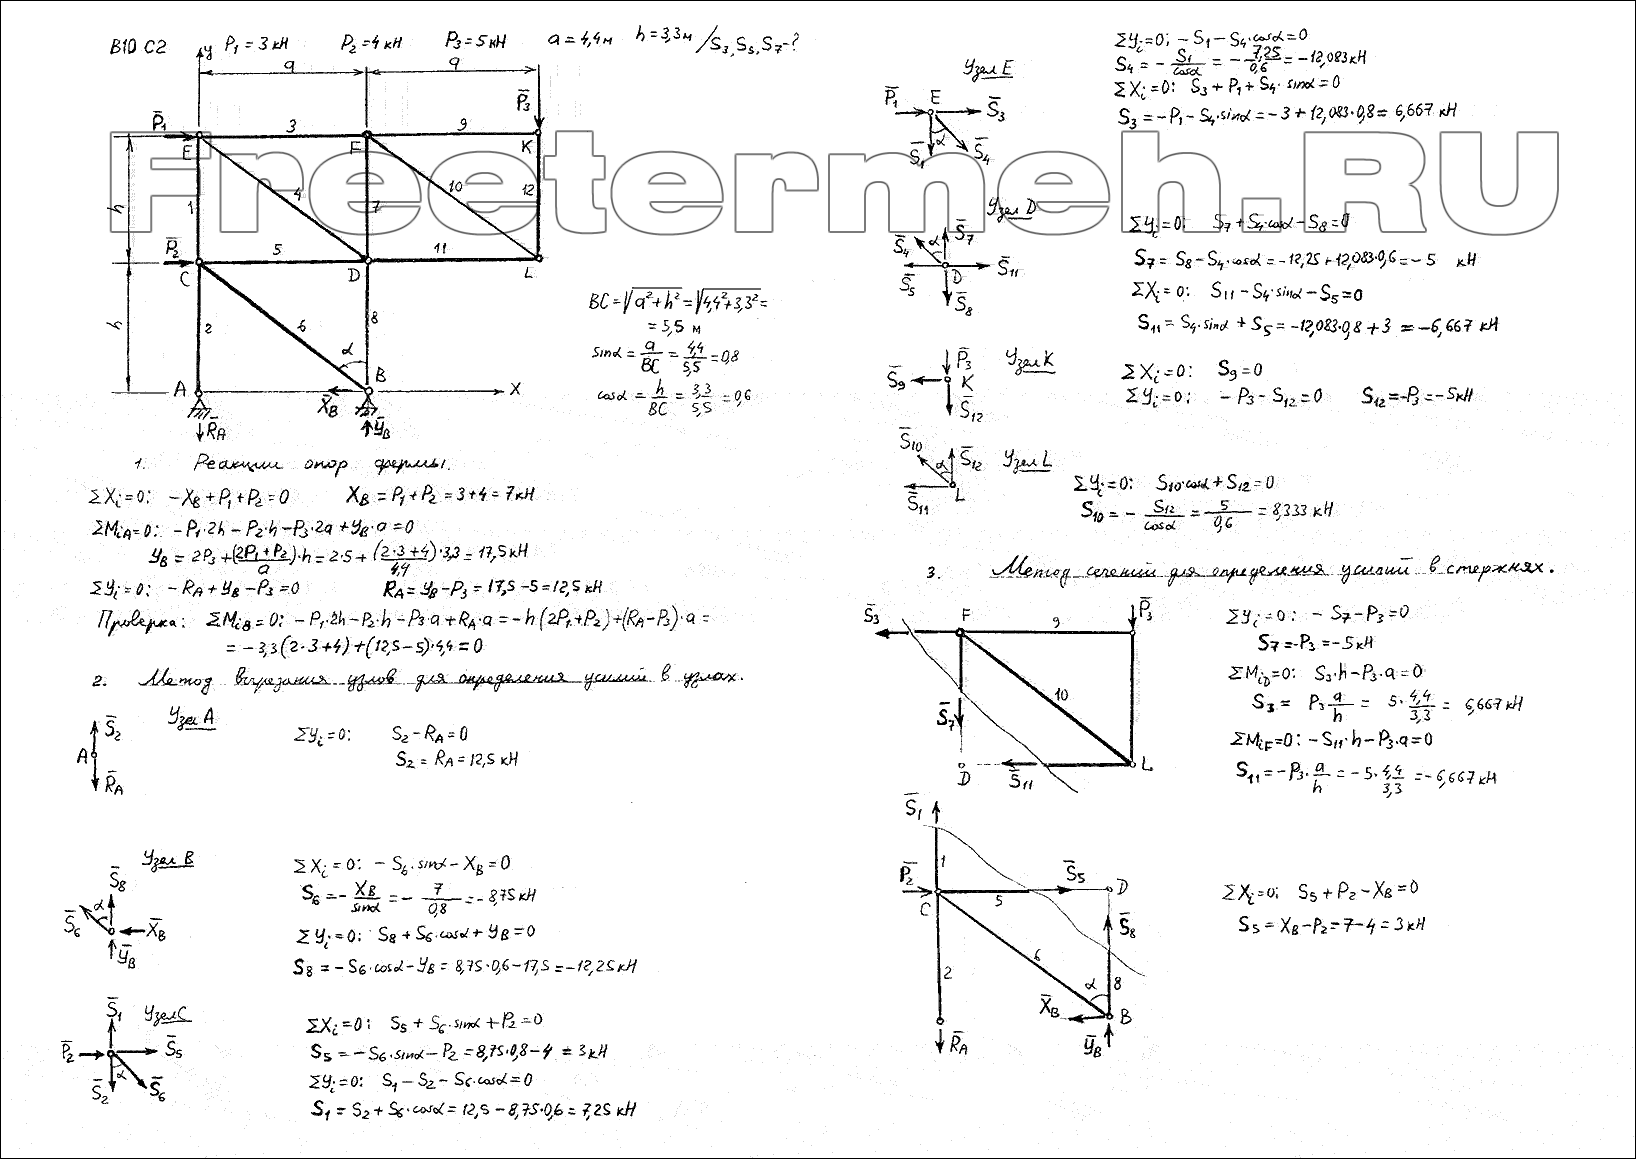 В10 С2 P₁ = 3 кН P₂ = 4 кН P₃ = 5 кН a = 4,4 м h = 3,3 м / S₃, S₅, S₇ - ?
y
a a
P̅₁ P̅₃
3 9
E F K
4 10 12
1 7
h
P̅₂
5 11
C D L
2 6 8
h
α
A B X
X̅_B
R̅_A Y̅_B
BC = √(a² + h²) = √(4,4² + 3,3²) =
= 5,5 м
sinα = a/BC = 4,4/5,5 = 0,8
cosα = h/BC = 3,3/5,5 = 0,6
1. Реакции опор фермы.
ΣX_i = 0: -X_B + P₁ + P₂ = 0 X_B = P₁ + P₂ = 3 + 4 = 7 кН
ΣM_iA = 0: -P₁·2h - P₂·h - P₃·2a + Y_B·a = 0
Y_B = 2P₃ + (2P₁ + P₂)/a·h = 2·5 + (2·3+4)/4,4·3,3 = 17,5 кН
ΣY_i = 0: -R_A + Y_B - P₃ = 0 R_A = Y_B - P₃ = 17,5 - 5 = 12,5 кН
Проверка: ΣM_iB = 0: -P₁·2h - P₂·h - P₃·a + R_A·a = -h(2P₁ + P₂) + (R_A - P₃)·a =
= -3,3(2·3+4) + (12,5-5)·4,4 = 0
2. Метод вырезания узлов для определения усилий в узлах.
Узел A
S̅₂
A
R̅_A
ΣY_i = 0: S₂ - R_A = 0
S₂ = R_A = 12,5 кН
Узел B
S̅₈
α
S̅₆ X̅_B
Y̅_B
ΣX_i = 0: -S₆·sinα - X_B = 0
S₆ = -X_B/sinα = -7/0,8 = -8,75 кН
ΣY_i = 0: S₈ + S₆·cosα + Y_B = 0
S₈ = -S₆·cosα - Y_B = 8,75·0,6 - 17,5 = -12,25 кН
Узел C
S̅₁
P̅₂ S̅₅
α
S̅₂ S̅₆
ΣX_i = 0: S₅ + S₆·sinα + P₂ = 0
S₅ = -S₆·sinα - P₂ = 8,75·0,8 - 4 = 3 кН
ΣY_i = 0: S₁ - S₂ - S₆·cosα = 0
S₁ = S₂ + S₆·cosα = 12,5 - 8,75·0,6 = 7,25 кН
Узел E
P̅₁ E S̅₃
α
S̅₁ S̅₄
ΣY_i = 0; -S₁ - S₄·cosα = 0
S₄ = -S₁/cosα = -7,25/0,6 = -12,083 кН
ΣX_i = 0: S₃ + P₁ + S₄·sinα = 0
S₃ = -P₁ - S₄·sinα = -3 + 12,083·0,8 = 6,667 кН
Freetermeh.RU
Узел D
S̅₄ α S̅₇
S̅₅ D S̅₁₁
S̅₈
ΣY_i = 0: S₇ + S₄·cosα - S₈ = 0
S₇ = S₈ - S₄·cosα = -12,25 + 12,083·0,6 = -5 кН
ΣX_i = 0: S₁₁ - S₄·sinα - S₅ = 0
S₁₁ = S₄·sinα + S₅ = -12,083·0,8 + 3 = -6,667 кН
Узел K
P̅₃
S̅₉ K
S̅₁₂
ΣX_i = 0: S₉ = 0
ΣY_i = 0: -P₃ - S₁₂ = 0 S₁₂ = -P₃ = -5 кН
Узел L
S̅₁₀ α S̅₁₂
S̅₁₁ L
ΣY_i = 0: S₁₀·cosα + S₁₂ = 0
S₁₀ = -S₁₂/cosα = 5/0,6 = 8,333 кН
3. Метод сечений для определения усилий в стержнях.
S̅₃ F 9 P̅₃
10
S̅₇
D S̅₁₁ L
ΣY_i = 0: -S₇ - P₃ = 0
S₇ = -P₃ = -5 кН
ΣM_iD = 0: S₃·h - P₃·a = 0
S₃ = P₃ a/h = 5·4,4/3,3 = 6,667 кН
ΣM_iF = 0: -S₁₁·h - P₃·a = 0
S₁₁ = -P₃·a/h = -5·4,4/3,3 = -6,667 кН
S̅₁
1
P̅₂ S̅₅ D
C 5
S̅₈
6
2 α 8
X̅_B B
R̅_A Y̅_B
ΣX_i = 0; S₅ + P₂ - X_B = 0
S₅ = X_B - P₂ = 7 - 4 = 3 кН